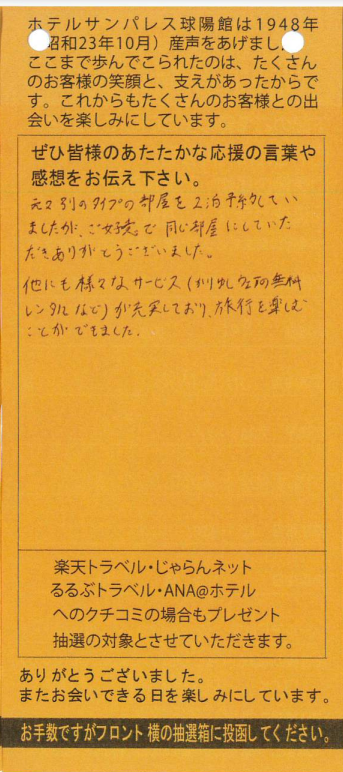 ホテルサンパレス球陽館は1948年
昭和23年10月）産声をあげまし
ここまで歩んでこられたのは、たくさん
のお客様の笑顔と、支えがあったからで
す。これからもたくさんのお客様との出
会いを楽しみにしています。
ぜひ皆様のあたたかな応援の言葉や
感想をお伝え下さい。
元々別のタイプの部屋を2泊予約してい
ましたが、ご好意で同じ部屋にしていた
だきありがとうございました。
他にも様々なサービス(かりゆしウェアの無料
レンタルなど)が充実しており、旅行を楽しむ
ことができました。
楽天トラベル・じゃらんネット
るるぶトラベル・ANA@ホテル
へのクチコミの場合もプレゼント
抽選の対象とさせていただきます。
ありがとうございました。
またお会いできる日を楽しみにしています。
お手数ですがフロント横の抽選箱に投函してください。